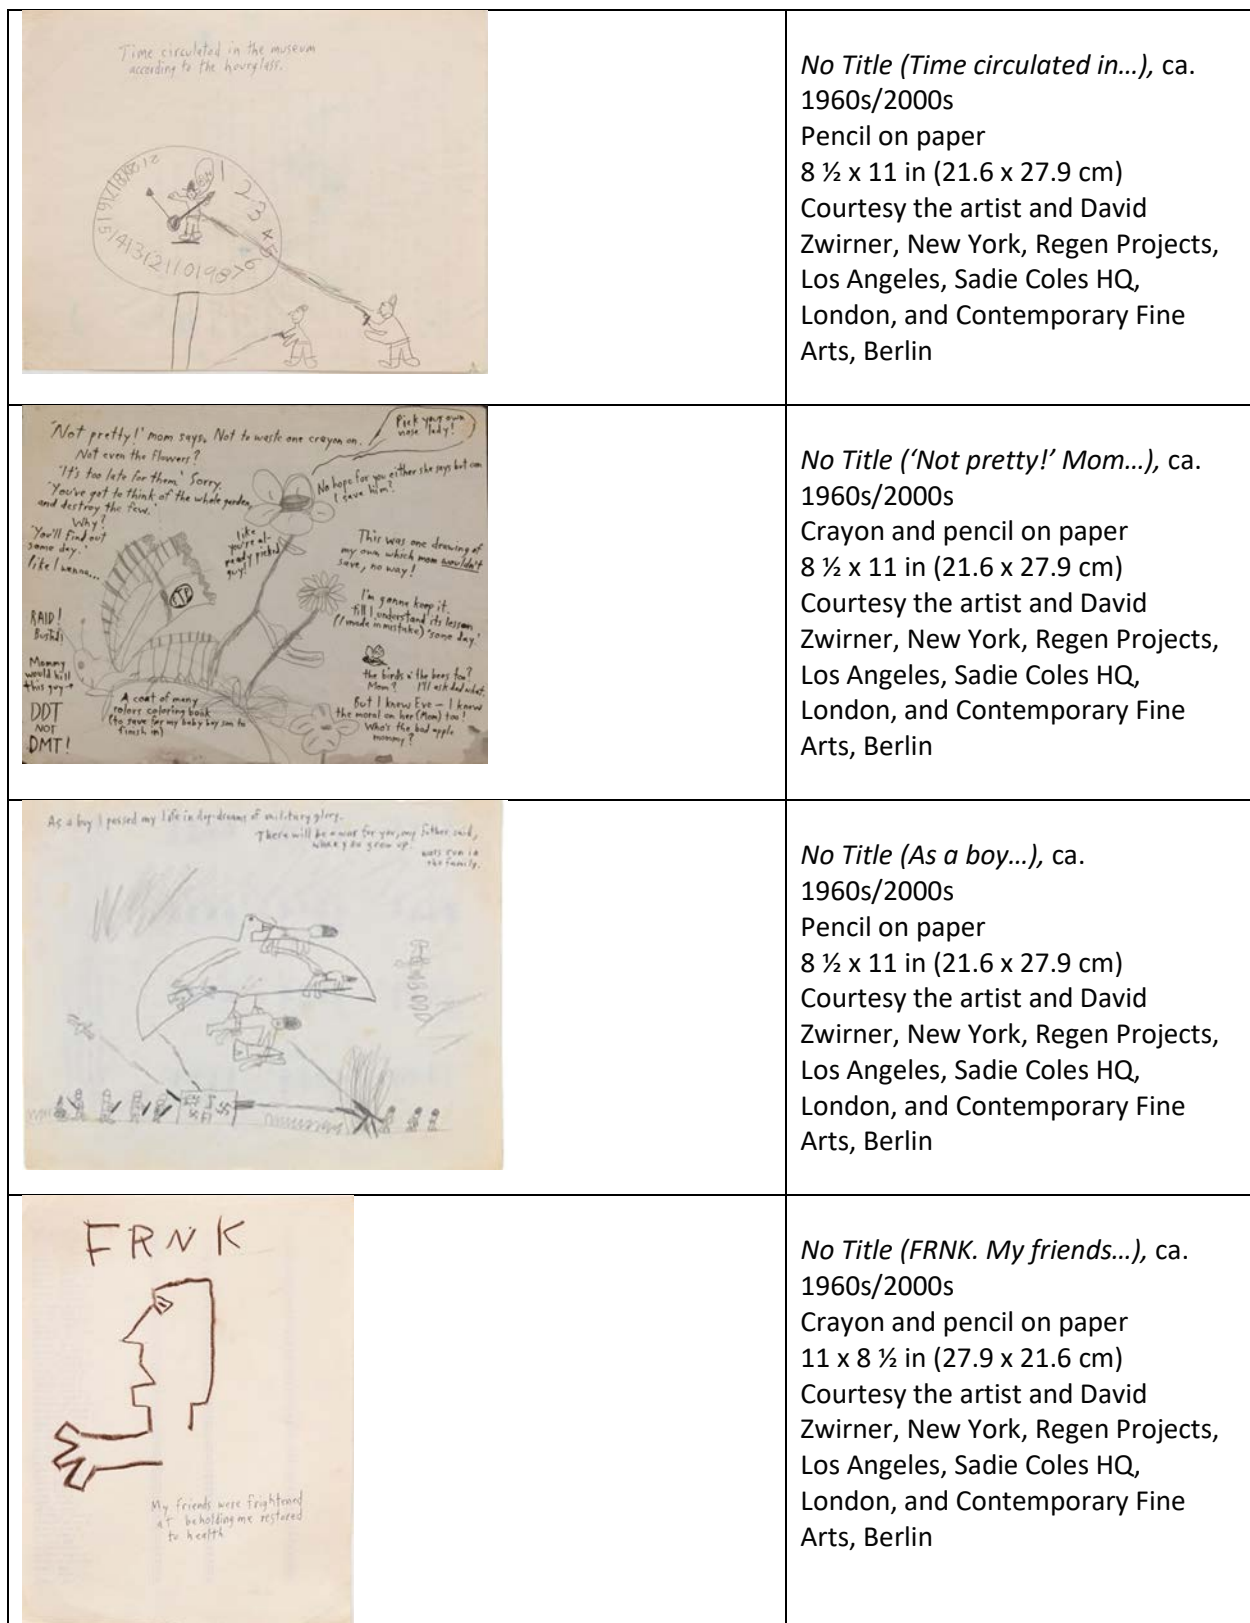 Time circulated in the museum
according to the hourglass.
1 2 3 4 5 6 7 8 9 10 11 12 13 14 15
No Title (Time circulated in…), ca.
1960s/2000s
Pencil on paper
8 ½ x 11 in (21.6 x 27.9 cm)
Courtesy the artist and David
Zwirner, New York, Regen Projects,
Los Angeles, Sadie Coles HQ,
London, and Contemporary Fine
Arts, Berlin
'Not pretty!' mom says. Not to waste one crayon on.
Not even the flowers?
'It's too late for them.' Sorry.
'You've got to think of the whole garden,
and destroy the few.'
Why?
'You'll find out
some day.'
like I wanna...
Pick your own
nose lady!
No hope for you either she says but can
I save him?
like
you're al-
ready picked
guy!
This was one drawing of
my own which mom wouldn't
save, no way!
I'm gonna keep it
till I understand its lesson
(I made in mistake) 'some day'
RAID!
Mommy
would kill
this guy→
DDT
NOT
DMT!
A coat of many
colors coloring book
(to save for my baby boy son to
finish in)
the birds n' the bees too?
Mom? I'll ask dad what.
But I knew Eve – I know
the moral on her (Mom) too!
Who's the bad apple
mommy?
No Title ('Not pretty!' Mom…), ca.
1960s/2000s
Crayon and pencil on paper
8 ½ x 11 in (21.6 x 27.9 cm)
Courtesy the artist and David
Zwirner, New York, Regen Projects,
Los Angeles, Sadie Coles HQ,
London, and Contemporary Fine
Arts, Berlin
As a boy I passed my life in day-dreams of military glory.
There will be a war for you, my father said,
when you grow up.
wars run in
the family.
No Title (As a boy…), ca.
1960s/2000s
Pencil on paper
8 ½ x 11 in (21.6 x 27.9 cm)
Courtesy the artist and David
Zwirner, New York, Regen Projects,
Los Angeles, Sadie Coles HQ,
London, and Contemporary Fine
Arts, Berlin
FRNK
My friends were frightened
at beholding me restored
to health
No Title (FRNK. My friends…), ca.
1960s/2000s
Crayon and pencil on paper
11 x 8 ½ in (27.9 x 21.6 cm)
Courtesy the artist and David
Zwirner, New York, Regen Projects,
Los Angeles, Sadie Coles HQ,
London, and Contemporary Fine
Arts, Berlin